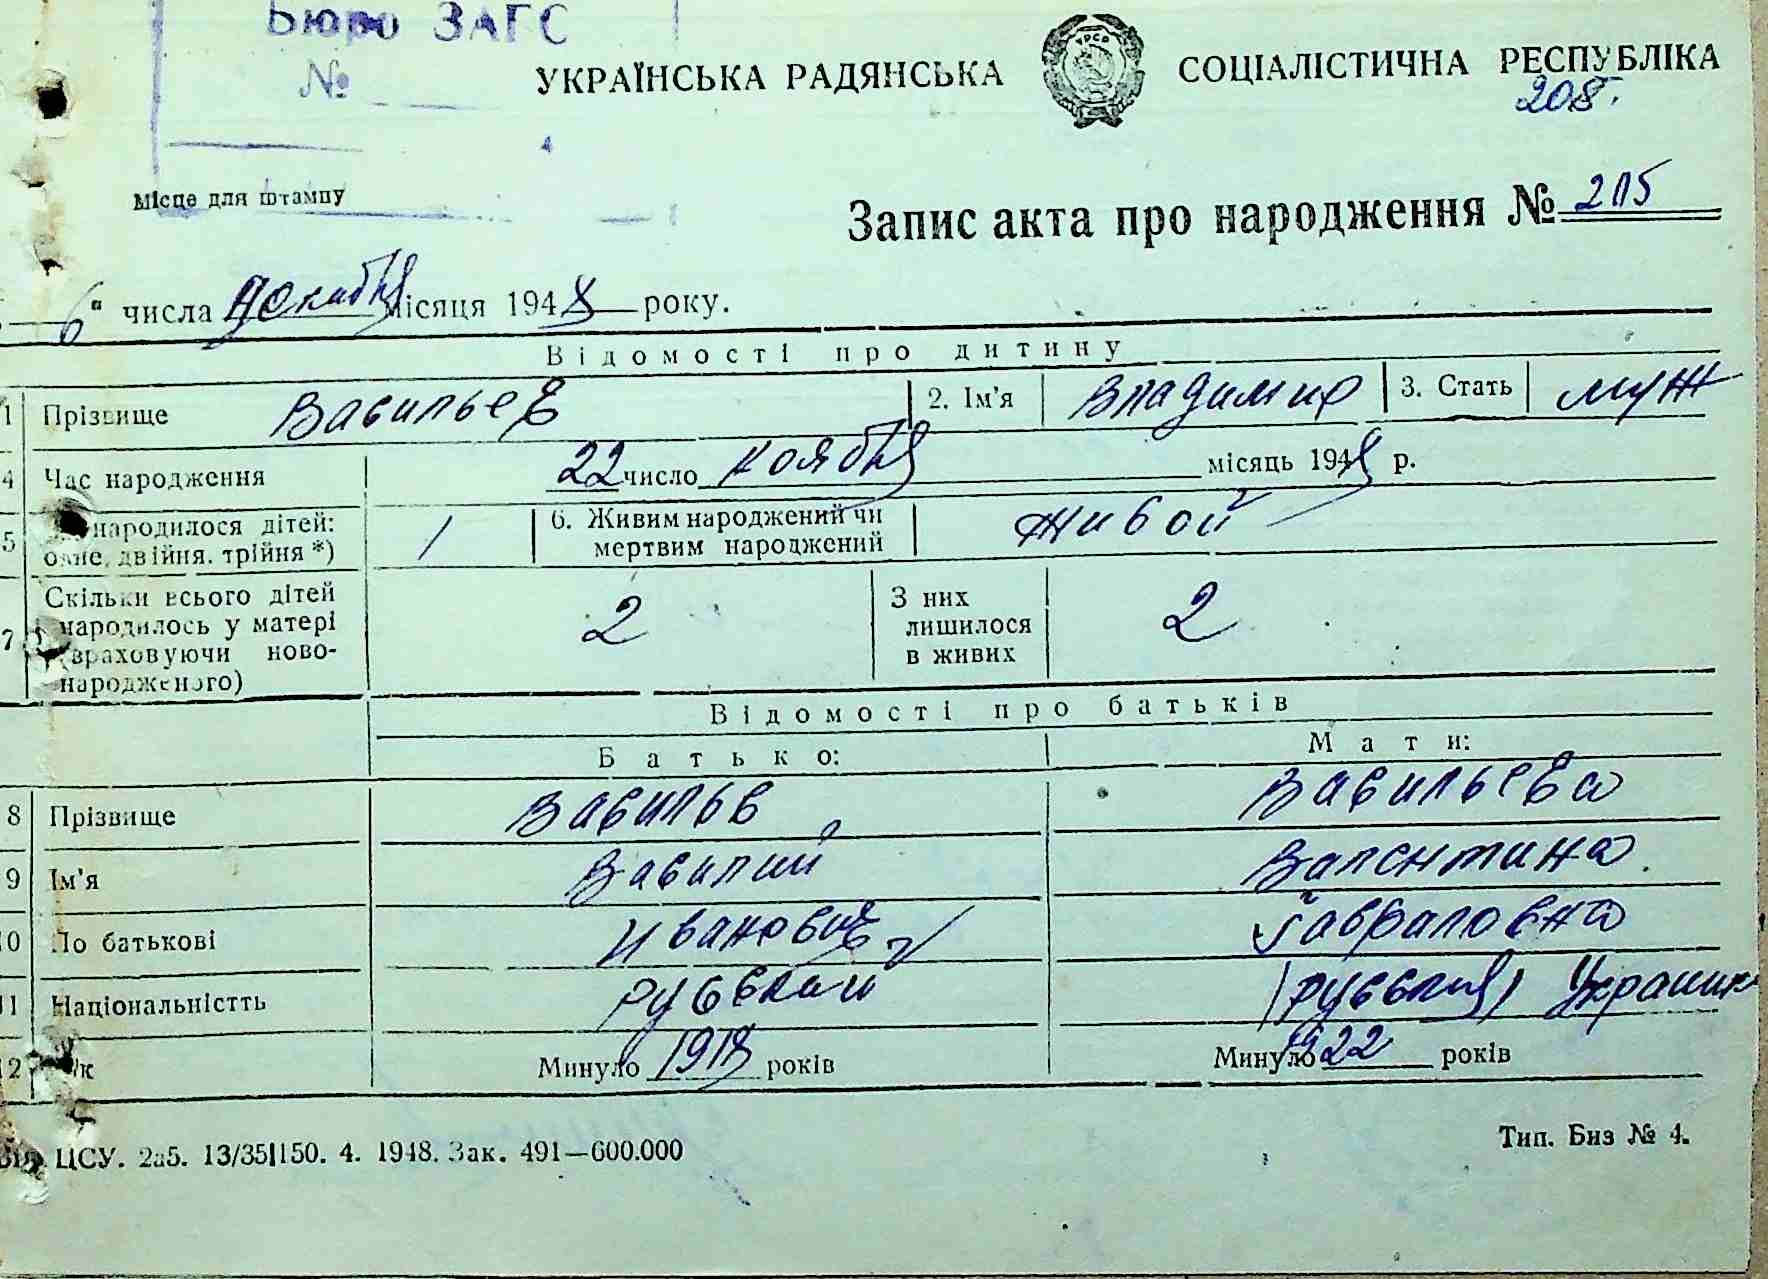 Бюро ЗАГС
№
УКРАЇНСЬКА РАДЯНСЬКА СОЦІАЛІСТИЧНА РЕСПУБЛІКА
УРСР
208.
Місце для штампу
Запис акта про народження № 205
6" числа Декабря місяця 1948 року.
Відомості про дитину
1 Прізвище Васильев 2. Ім'я Владимир 3. Стать муж
4 Час народження 22 число ноября місяць 1948 р.
5 народилося дітей: 1 6. Живим народжений чи живой
одне, двійня, трійня *) мертвим народжений
7 Скільки всього дітей 2 З них 2
народилось у матері лишилося
враховуючи ново- в живих
народженого)
Відомості про батьків
Батько: Мати:
8 Прізвище Васильв Васильева
9 Ім'я Василий Валентина
10 По батькові Иванович Гавриловна
11 Національністть русский (русская) Украинк
12 Минуло 1918 років Минуло 1922 років
ЦСУ. 2а5. 13/35|150. 4. 1948. Зак. 491—600.000 Тип. Биз № 4.